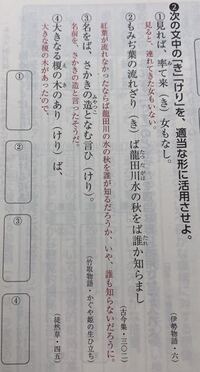 ❷次の文中の「き」「けり」を、適当な形に活用させよ。
①見れば、率て来（き）女もなし。
（伊勢物語・六）
見ると、連れてきた女もいない。
②もみぢ葉の流れざり（き）ば龍田川水の秋をば誰か知らまし
たつたがは
たれ
（古今集・三〇二）
紅葉が流れなかったならば龍田川の水の秋を誰が知るだろうか、いや、誰も知らないだろうに。
③名をば、さかきの造となむ言ひ（けり）。
みやつこ
（竹取物語・かぐや姫の生ひ立ち）
名前を、さかきの造と言ったそうだ。
④大きなる榎の木のあり（けり）ば、
（徒然草・四五）
大きな榎の木があったので、
①
②
③
④